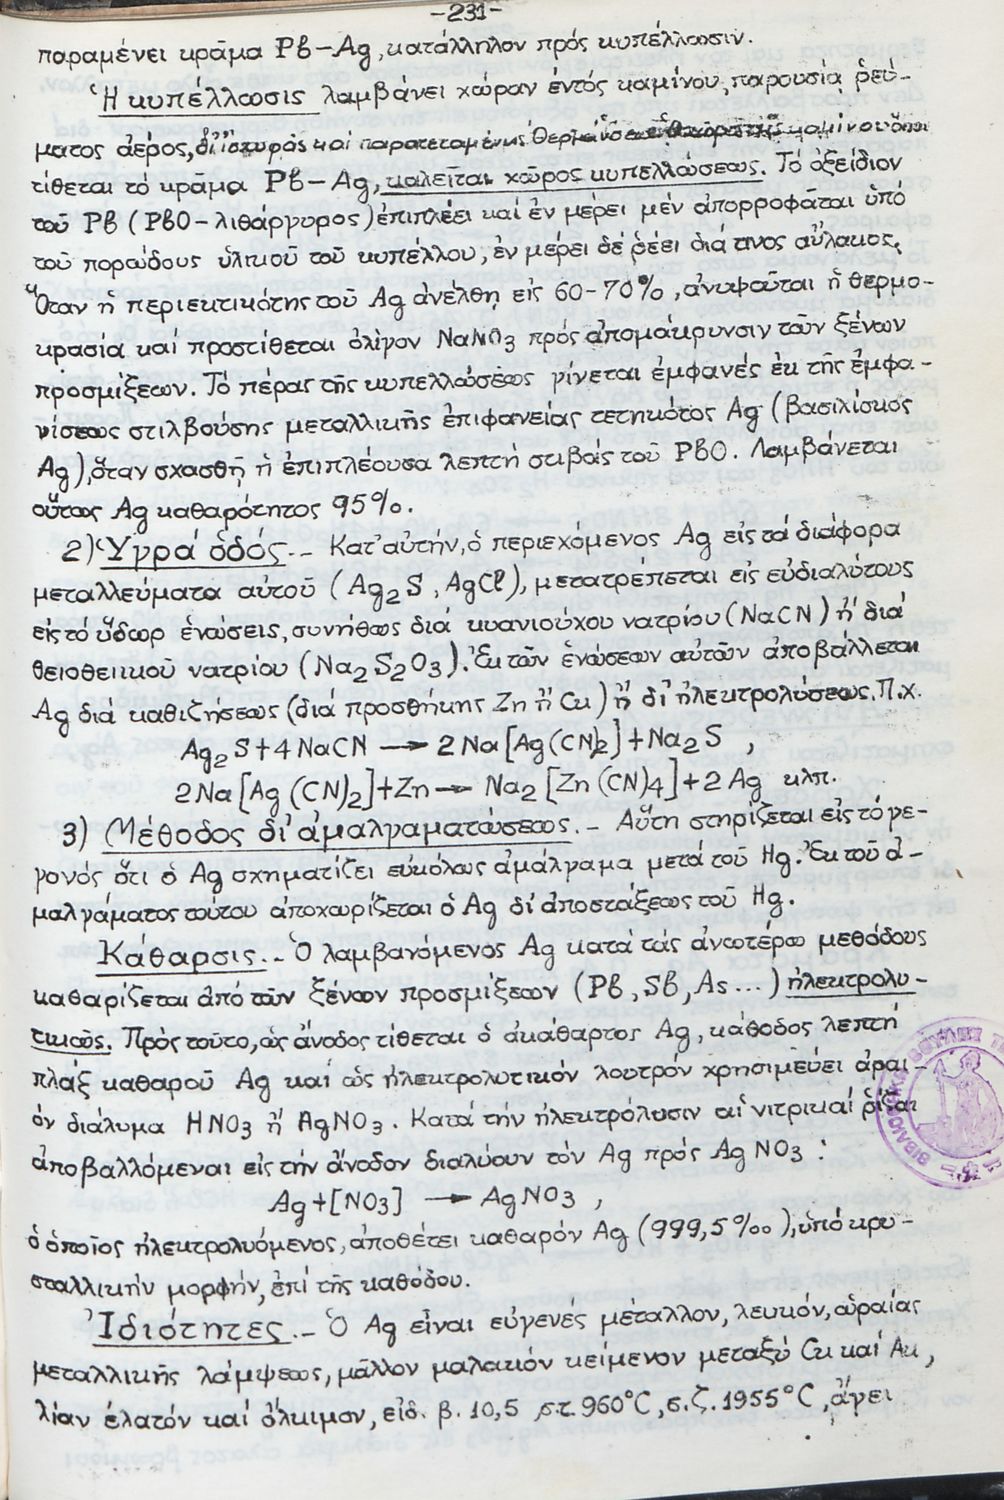 -231-
παραμένει κρᾶμα Pb-Ag, κατάλληλον πρός κυπέλλωσιν.
Ἡ κυπέλλωσις λαμβάνει χώραν ἐντός καμίνου, παρουσίᾳ ῥεύ-
ματος ἀέρος, δι' ἰσχυρᾶς καί παρατεταμένης θερμάνσεως καμίνου ὅπου
τίθεται τό κρᾶμα Pb-Ag, καλεῖται χῶρος κυπελλώσεως. Τό ὀξείδιον
τοῦ Pb (PbO-λιθάργυρος) ἐπιπλέει καί ἐν μέρει μέν ἀπορροφαται ὑπό
τοῦ πορώδους ὑλικοῦ τοῦ κυπέλλου, ἐν μέρει δέ ῥέει διά τινος αὔλακος.
Ὅταν ἡ περιεκτικότης τοῦ Ag ἀνέλθη εἰς 60-70%, ἀνυψοῦται ἡ θερμο-
κρασία καί προστίθεται ὀλίγον NaNO3 πρός ἀπομάκρυνσιν τῶν ξένων
προσμίξεων. Τό πέρας τῆς κυπελλώσεως γίνεται ἐμφανές ἐκ τῆς ἐμφα-
νίσεως στιλβούσης μεταλλικῆς ἐπιφανείας τετηκότος Ag (βασιλίσκος
Ag), ὅταν σχασθῇ ἡ ἐπιπλέουσα λεπτή στιβάς τοῦ PbO. Λαμβάνεται
οὕτως Ag καθαρότητος 95%.
2) Ὑγρά ὁδός.- Κατ' αὐτήν, ὁ περιεχόμενος Ag εἰς τά διάφορα
μεταλλεύματα αὐτοῦ (Ag2S, AgCl), μετατρέπεται εἰς εὐδιαλύτους
εἰς τό ὕδωρ ἑνώσεις, συνήθως δια κυανιούχου νατρίου (NaCN) ἤ διά
θειοθειικοῦ νατρίου (Na2S2O3). Ἐκ τῶν ἑνώσεων αὐτῶν ἀποβάλλεται
Ag διά καθιζήσεως (διά προσθήκης Zn ἤ Cu) ἤ δι' ἠλεκτρολύσεως. Π.χ.
Ag2S+4NaCN → 2Na[Ag(CN)2]+Na2S ,
2Na[Ag(CN)2]+Zn → Na2[Zn(CN)4]+2Ag κλπ.
3) Μέθοδος δι' ἀμαλγαματώσεως.- Αὕτη στηρίζεται εἰς τό γε-
γονός ὅτι ὁ Ag σχηματίζει εὐκόλως ἀμάλγαμα μετά τοῦ Hg. Ἐκ τοῦ ἀ-
μαλγάματος τούτου ἀποχωρίζεται ὁ Ag δι' ἀποστάξεως τοῦ Hg.
Κάθαρσις.- Ὁ λαμβανόμενος Ag κατα τάς ἀνωτέρω μεθόδους
καθαρίζεται ἀπό τῶν ξένων προσμίξεων (Pb, Sb, As...) ἠλεκτρολυ-
τικῶς. Πρός τοῦτο, ὡς ἄνοδος τίθεται ὁ ἀκάθαρτος Ag, κάθοδος λεπτή
πλάξ καθαροῦ Ag καί ὡς ἠλεκτρολυτικόν λουτρόν χρησιμεύει ἀραι-
όν διάλυμα HNO3 ἤ AgNO3. Κατά τήν ἠλεκτρόλυσιν αἱ νιτρικαί ῥίζαι
ἀποβαλλόμεναι εἰς τήν ἄνοδον διαλύουν τόν Ag πρός AgNO3 :
Ag+[NO3] → AgNO3 ,
ὁ ὁποῖος ἠλεκτρολυόμενος, ἀποθέτει καθαρόν Ag (999,5‰), ὑπό κρυ-
σταλλικήν μορφήν, ἐπί τῆς καθόδου.
Ἰδιότητες.- Ὁ Ag εἶναι εὐγενές μέταλλον, λευκόν, ὡραίας
μεταλλικῆς λάμψεως, μᾶλλον μαλακόν κείμενον μεταξύ Cu καί Au,
λίαν ἐλατόν καί ὅλκιμον, εἰδ. β. 10,5 σ.τ. 960°C, σ.ζ. 1955°C, ἄγει